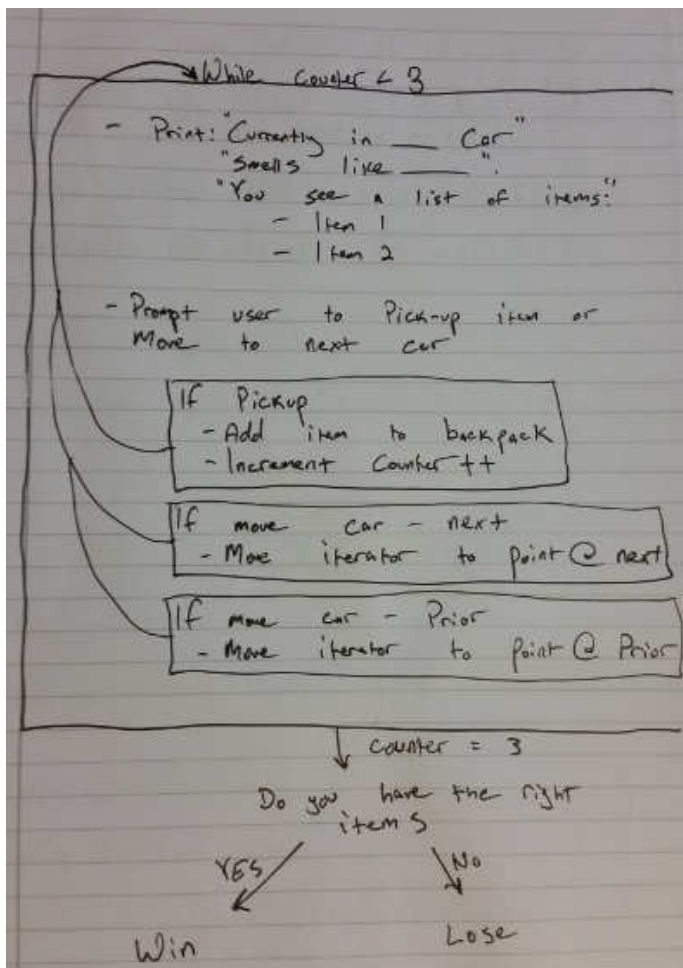 While Counter < 3
- Print: "Currently in ___ Car"
"Smells like ___".
"You see a list of items:"
- Item 1
- Item 2
- Prompt user to Pick-up item or
Move to next car
If Pickup
- Add item to backpack
- Increment Counter ++
If move car - next
- Move iterator to point @ next
If move car - Prior
- Move iterator to point @ Prior
Counter = 3
Do you have the right
items
YES
No
Win
Lose